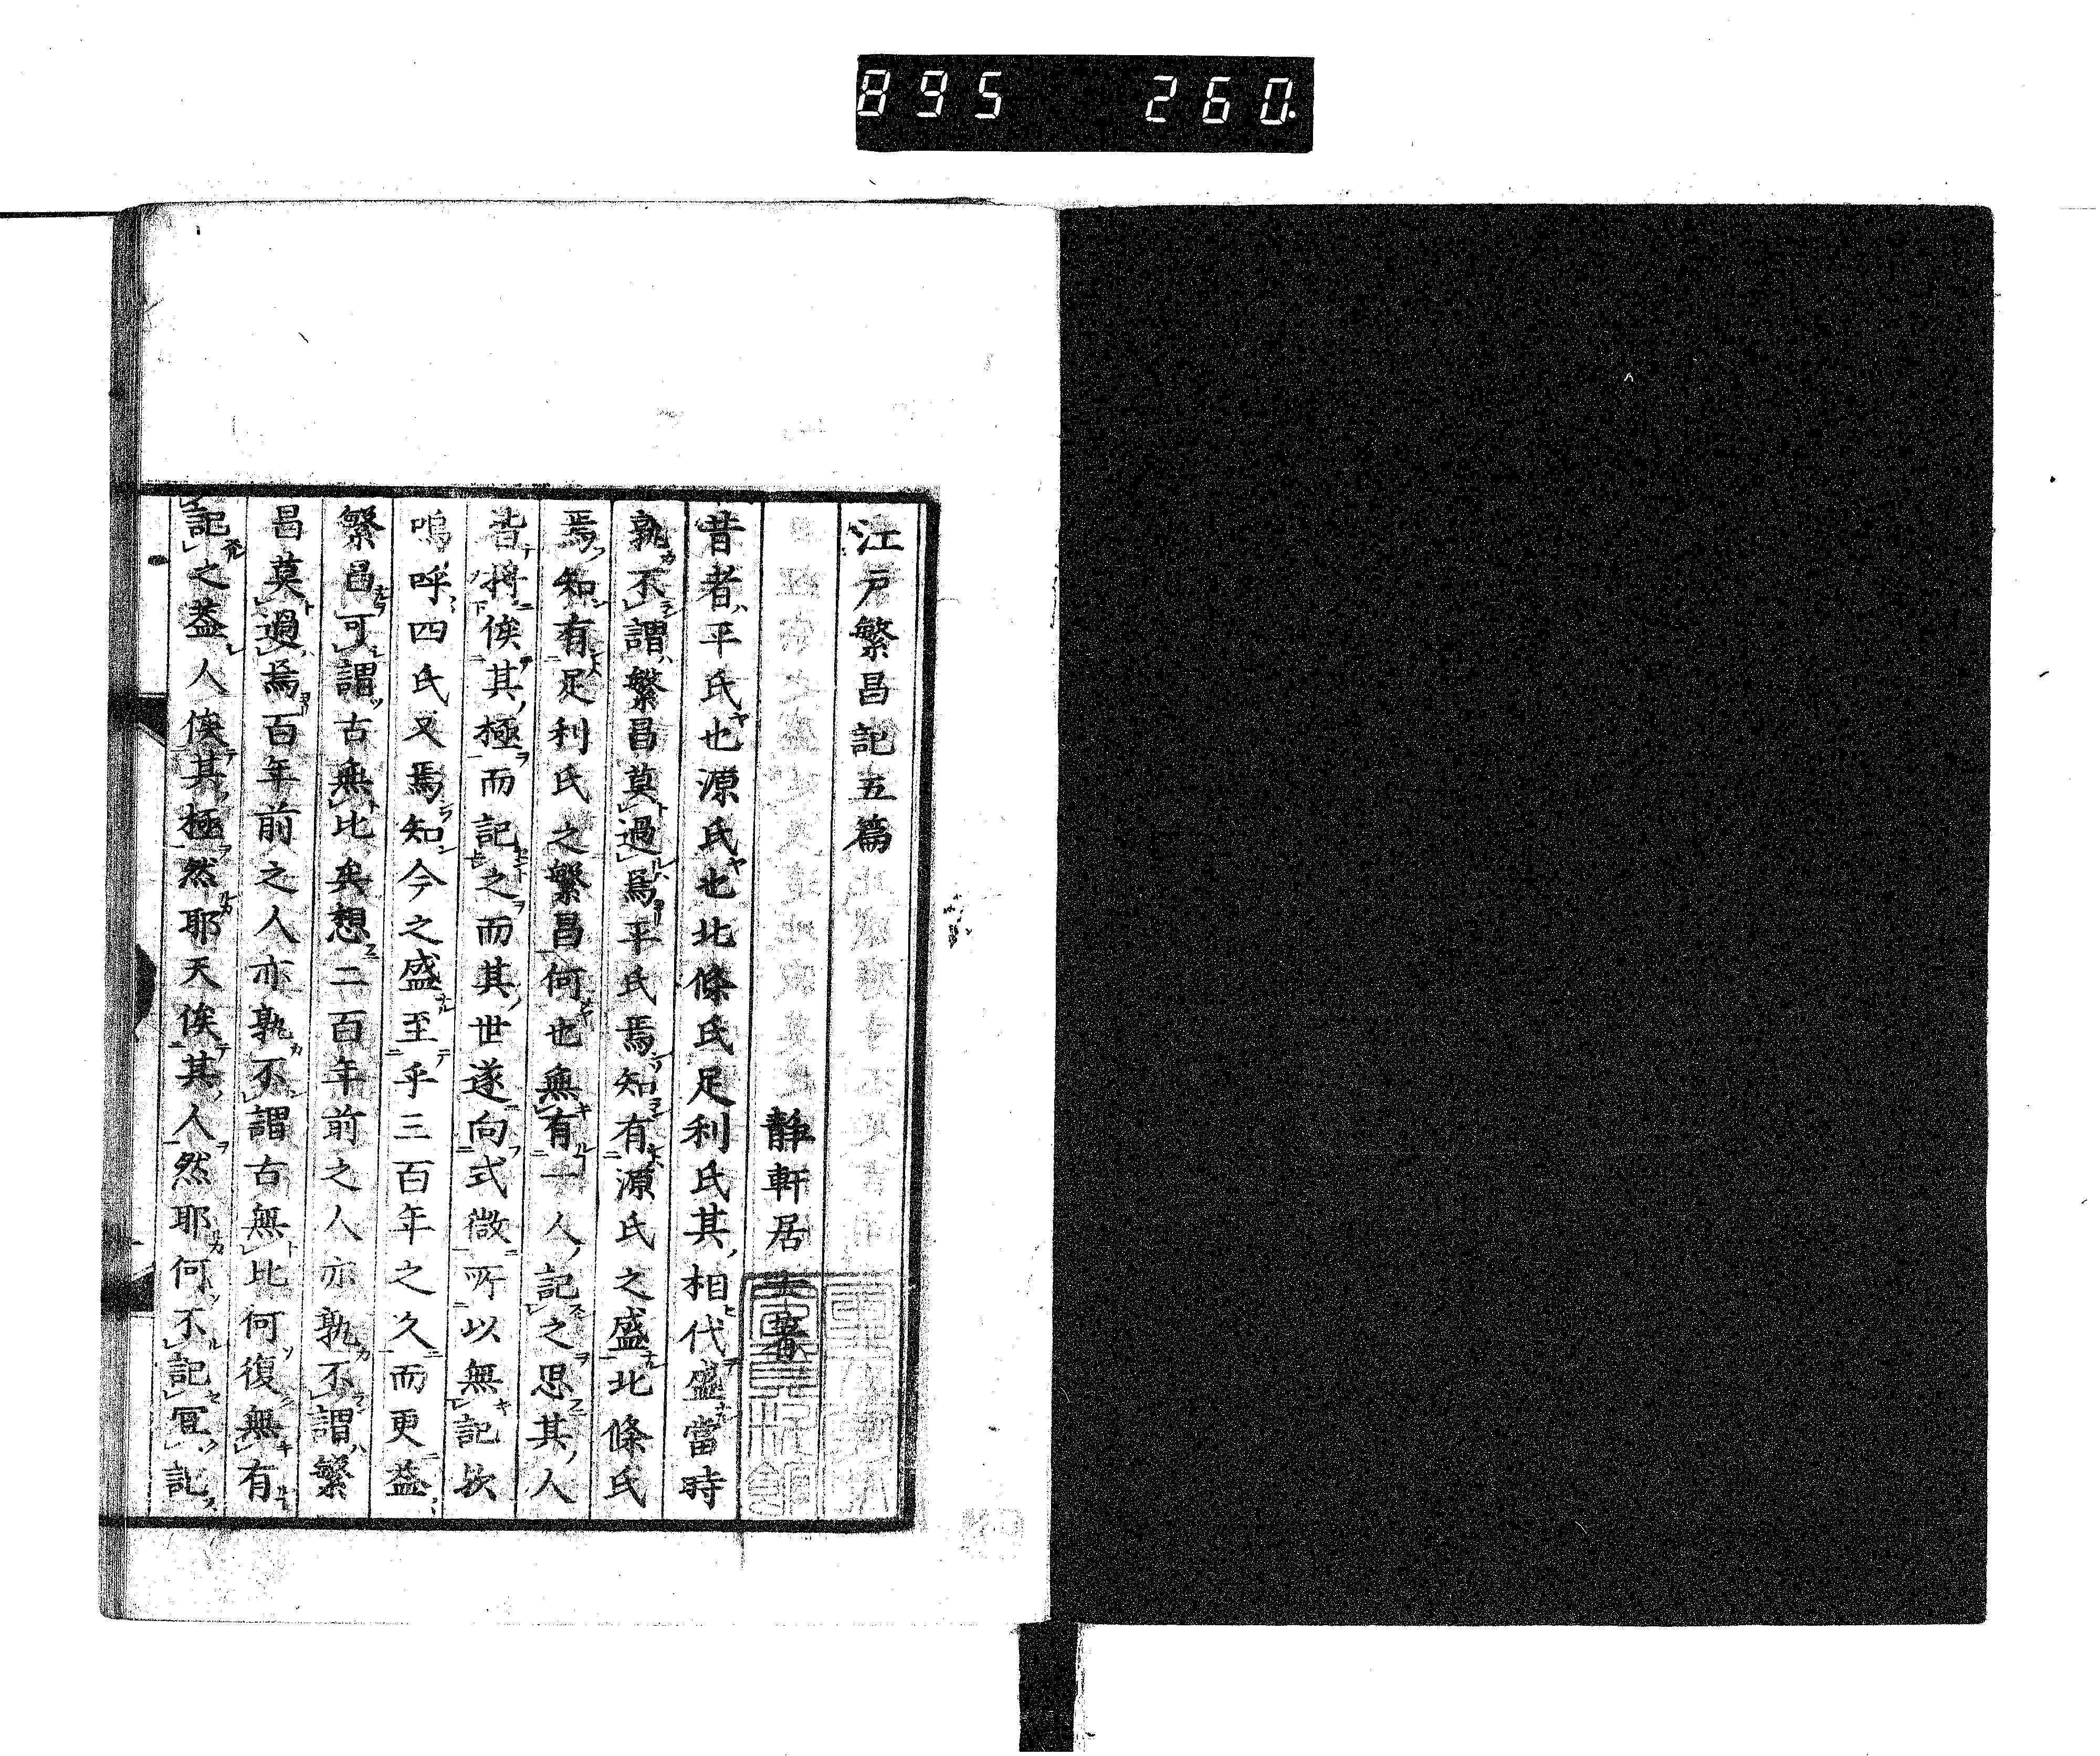 895 260
江戸繁昌記五篇
靜軒居士著
昔者平氏也源氏也北條氏足利氏其相代盛當時
孰不謂繁昌莫過焉平氏焉知有源氏之盛北條氏
焉知有足利氏之繁昌何也無有一人記之思其人
皆将俟其極而記之而其世遂向式微所以無記欤
嗚呼四氏又焉知今之盛至乎三百年之久而更益
繁昌可謂古無比矣想二百年前之人亦孰不謂繁
昌莫過焉百年前之人亦孰不謂古無比何復無有
記之益人俟其極然耶天俟其人然耶何不記冥記